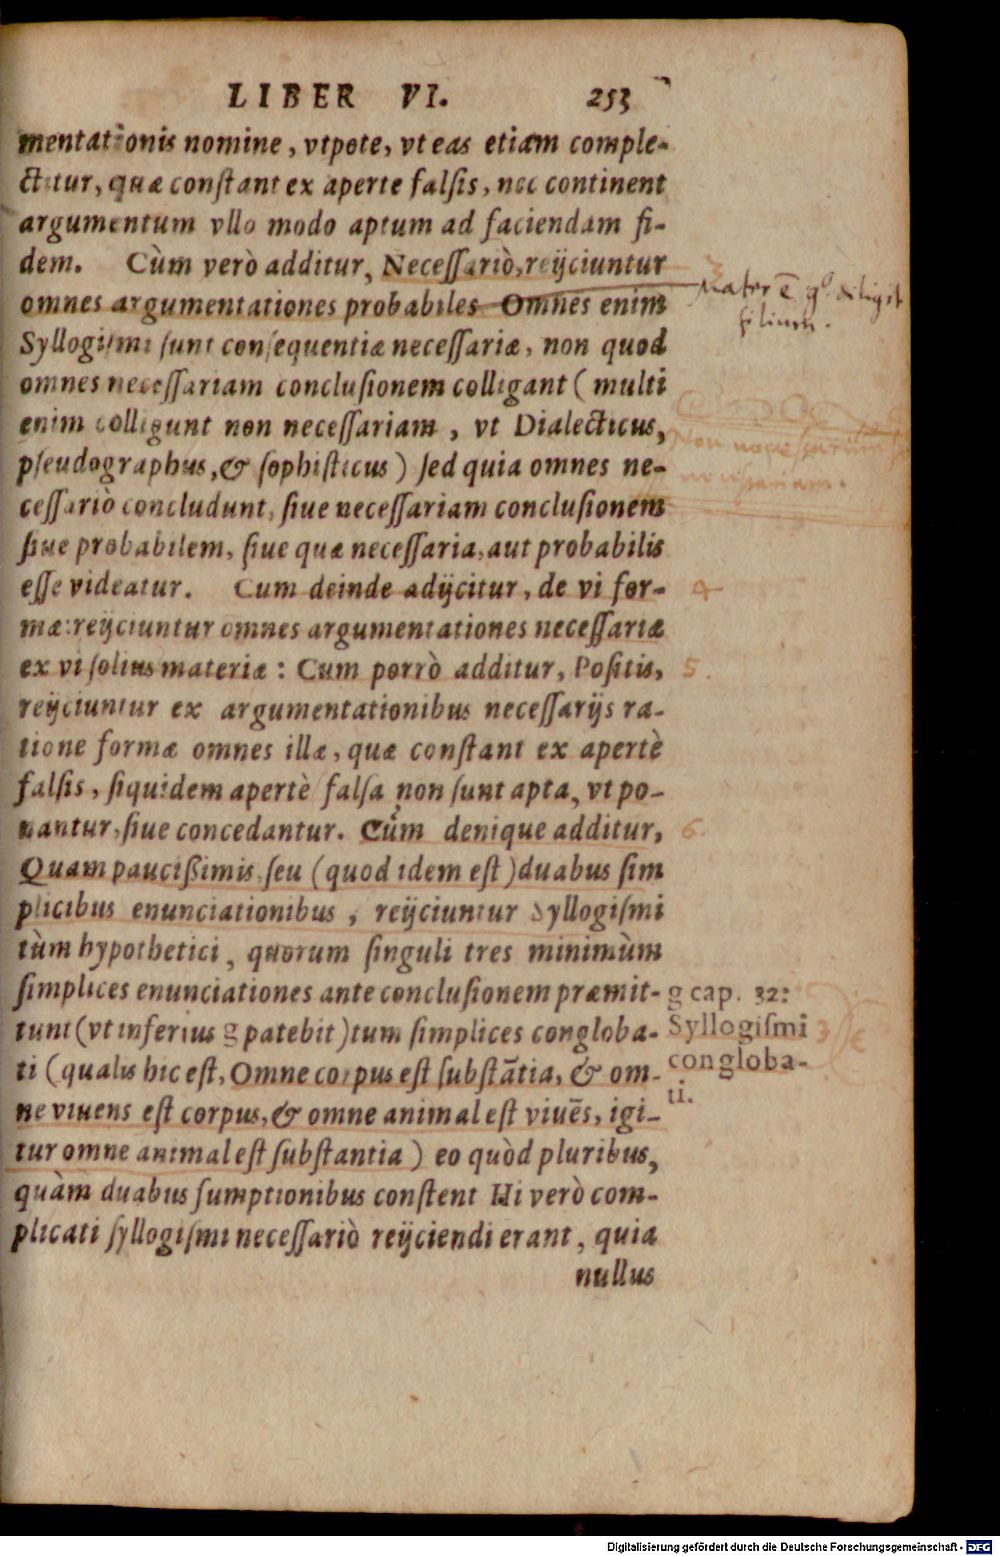 LIBER VI. 253
mentationis nomine, vtpote, vt eas etiam comple-
ctitur, quæ conſtant ex aperte falſis, nec continent
argumentum vllo modo aptum ad faciendam fi-
dem. Cùm verò additur, Neceſſariò, reijciuntur
omnes argumentationes probabiles Omnes enim
Syllogiſmi ſunt conſequentiæ neceſſariæ, non quod
omnes neceſſariam concluſionem colligant (multi
enim colligunt non neceſſariam, vt Dialecticus,
pſeudographus, & ſophiſticus) ſed quia omnes ne-
ceſſariò concludunt, ſiue neceſſariam concluſionem
ſiue probabilem, ſiue quæ neceſſaria, aut probabilis
eſſe videatur. Cum deinde adijcitur, de vi for-
mæ: reijciuntur omnes argumentationes neceſſariæ
ex vi ſolius materiæ: Cum porrò additur, Poſitis,
reijciuntur ex argumentationibus neceſſarijs ra-
tione formæ omnes illæ, quæ conſtant ex apertè
falſis, ſiquidem apertè falſa non ſunt apta, vt po-
nantur, ſiue concedantur. Cùm denique additur,
Quam pauciſſimis ſeu (quod idem eſt) duabus ſim
plicibus enunciationibus, reijciuntur Syllogiſmi
tùm hypothetici, quorum ſinguli tres minimùm
ſimplices enunciationes ante concluſionem præmit-
tunt (vt inferius g patebit) tum ſimplices congloba-
ti (qualis hic eſt, Omne corpus eſt ſubſtãtia, & om-
ne viuens eſt corpus, & omne animal eſt viuẽs, igi-
tur omne animal eſt ſubſtantia) eo quòd pluribus,
quàm duabus ſumptionibus conſtent Hi verò com-
plicati ſyllogiſmi neceſſariò reijciendi erant, quia
nullus
3
Mater ē diligit
filium.
Non
4
5.
6.
g cap. 32:
Syllogiſmi
congloba-
ti.
3
Digitalisierung gefördert durch die Deutsche Forschungsgemeinschaft - DFG